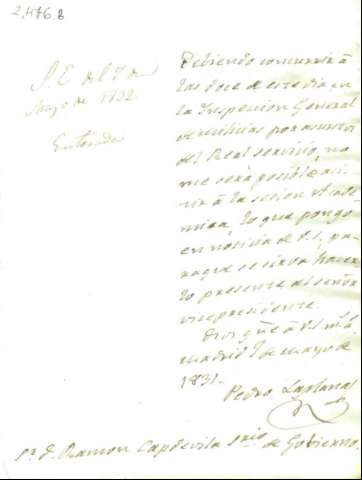 2.476.8
S. E. del 7 de
Mayo de 1832.
Enterado
Debiendo concurrir à
las doce de este dia en
la Inspeccion General
de milicias por asunto
del Real servicio, no
me será posible asis-
tir à la sesion
lo que pongo
en noticia de V. S. pa-
ra que se sirva hacer-
lo presente al señor
vicepresidente.
Dios gue à V. S. m. a.
Madrid 7 de mayo de
1831.
Pedro Laplana
Sr. D. Ramon Capdevila Srio de Gobierno.